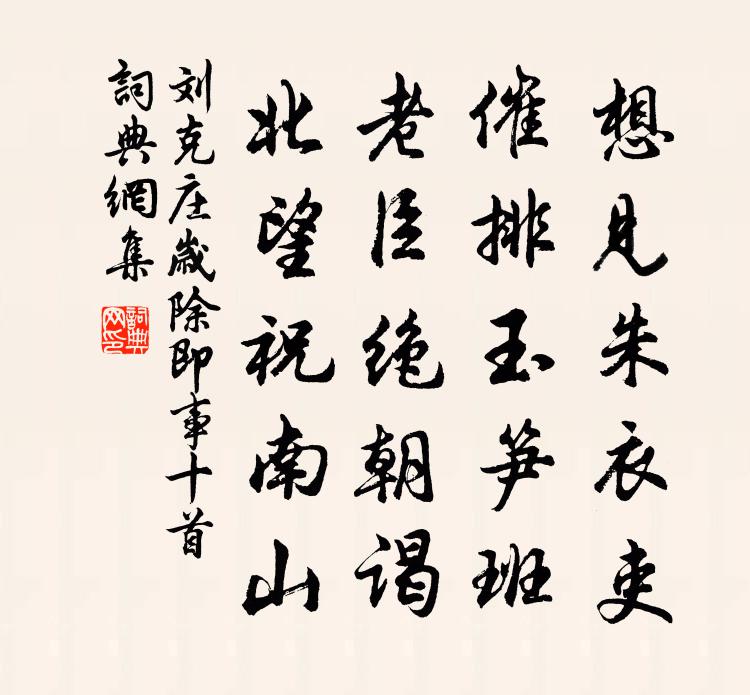 想見朱衣吏
催排玉笋班
老臣绝朝谒
北望祝南山
刘克庄歲除即事十首
詞典網集
詞典网印